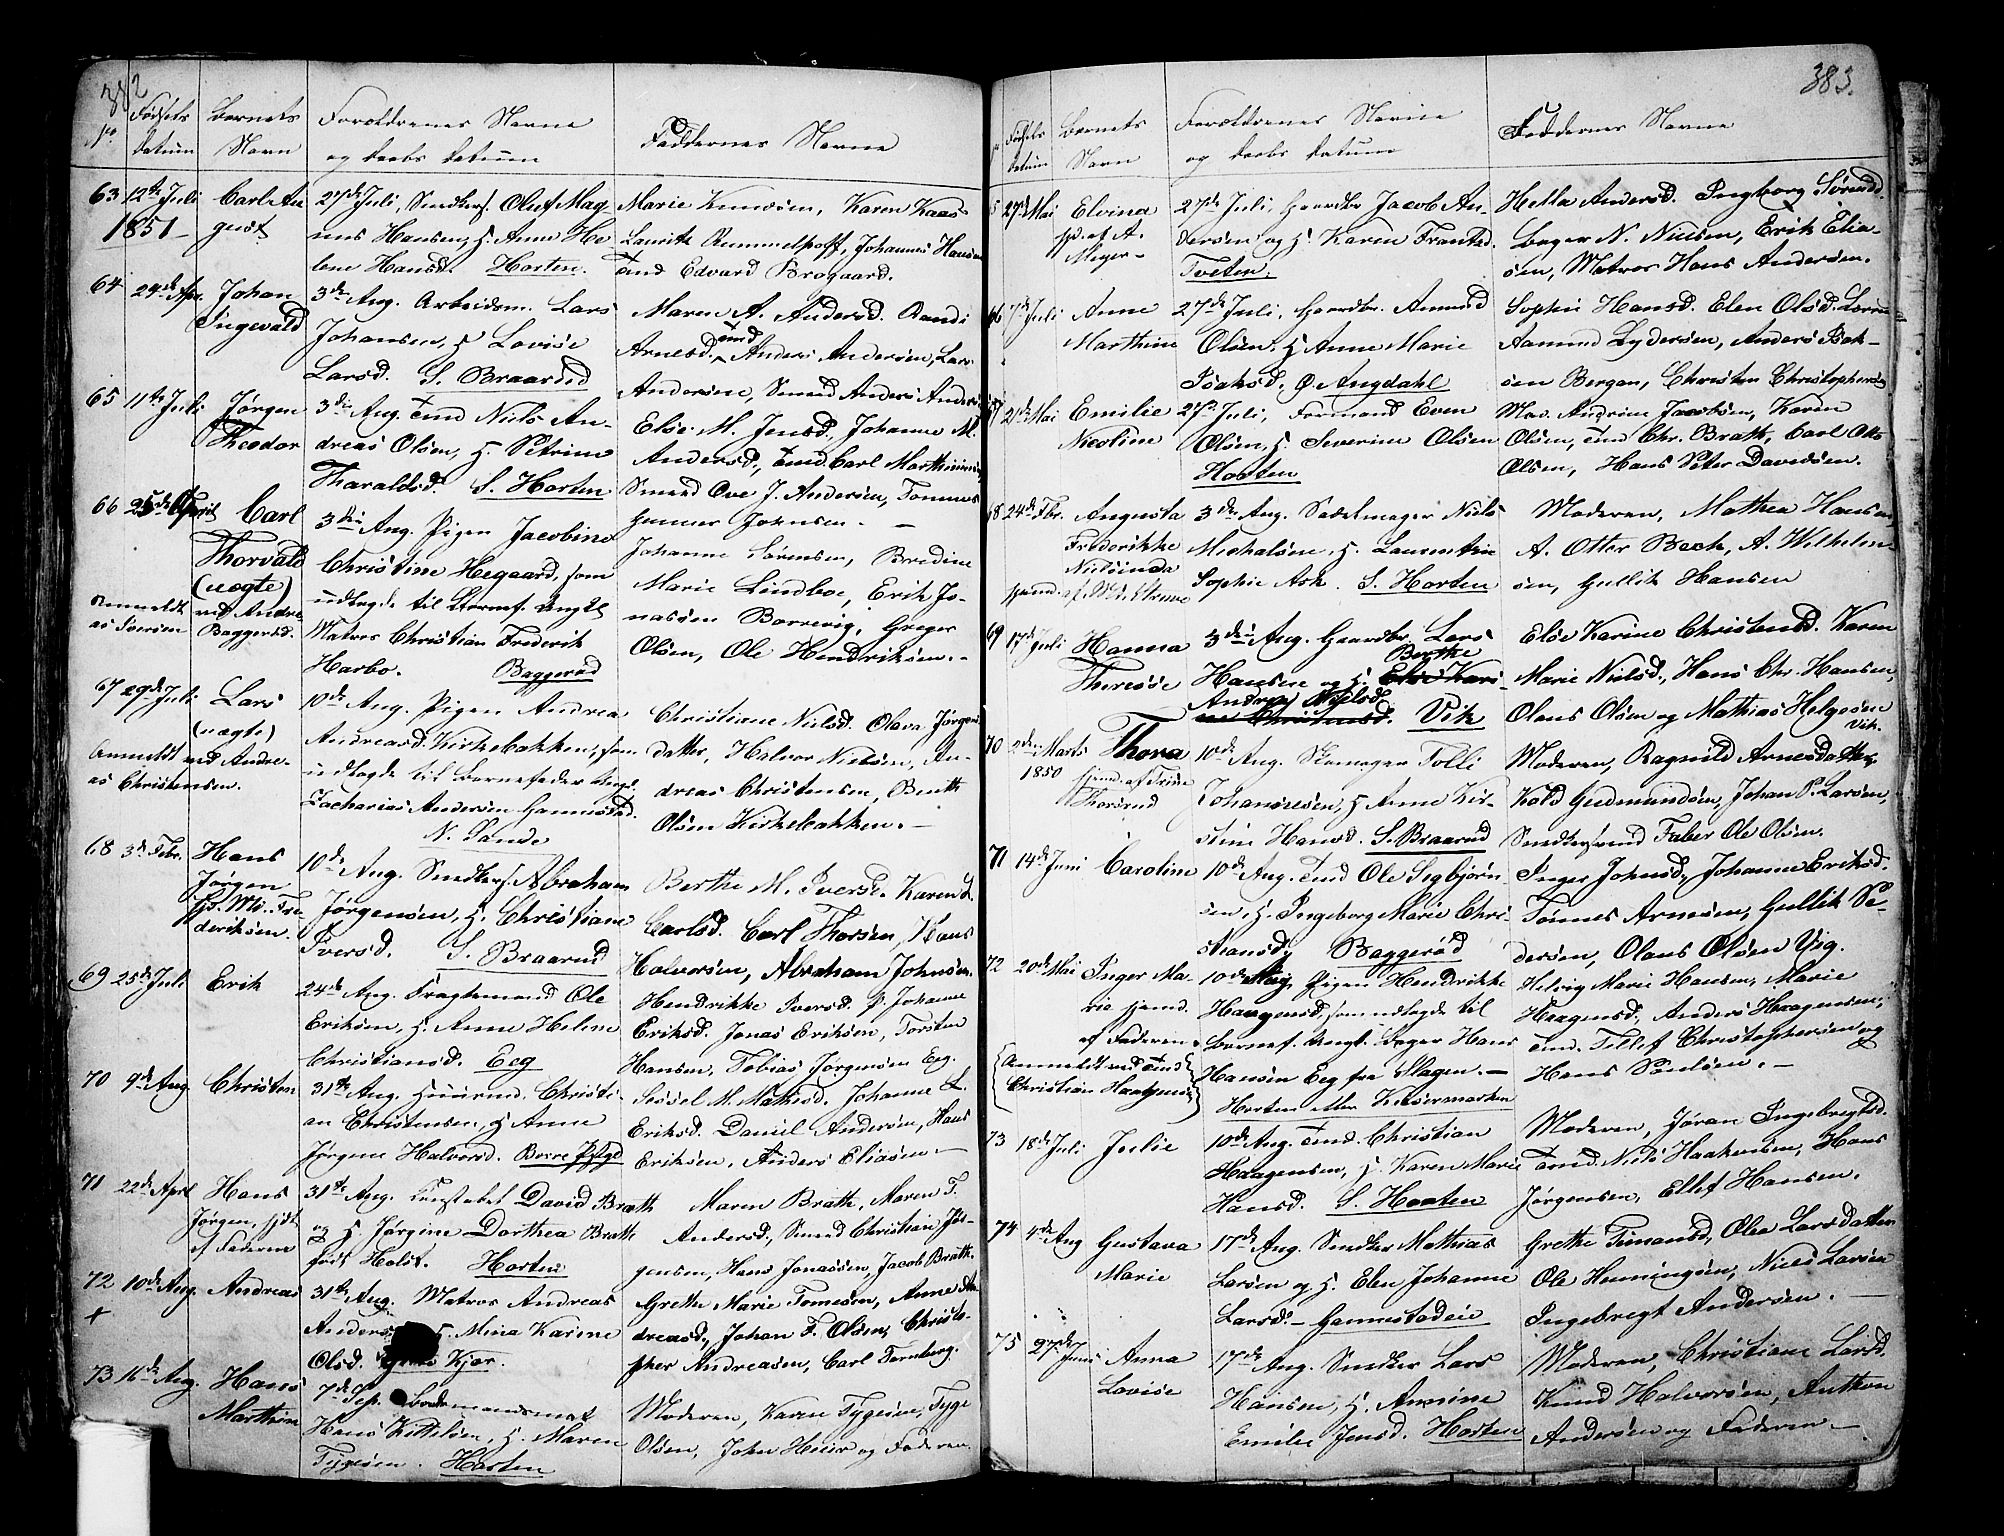 382
No Fødsels datum
Barnets Navn
Forældrenes Navne og daabs datum
Faddernes Navne
63 12te Juli 1851
Carl August
27de Juli, Snedkers. Oluf Mag-
nus Hansen, H. Anne He-
lene Hansd. Horten.
Marie Knudsen, Karen Kaas
Lauritz Rummelhoff, Johannes Hansen
Tmd Edvard Brogaard.
64 24de Apr. Johan Ingevald
3die Aug. Arbeidsm. Lars
Johansen, H. Lovise
Larsd. S. Braarud
Maren A. Andersd. Randi
Arnesd. Tmd Anders Andersen, Lars
Andersen, Smed Anders Anders.
65 11te Juli Jørgen Theodor
3die Aug. Tmd Niels An-
dreas Olsen, H. Petrine
Tharaldsd. S. Horten
Else M. Jensd. Johanne M.
Andersd., Tmd. Carl Marthinsen
Smed Ove J. Andersen, Tommes
Gunner Johnsen. —
66 25de April Carl
Thorvald
(uægte)
Anmeldt ved Andre-
as Iversen Baggerød.
3die Aug. Pigen Jacobine
Christine Hegaard, som
udlagde til Barnef. Ungkl
Matros Christian Frederik
Harbo. Baggerød
Johanne Sørensen, Bredine
Marie Lindboe, Erik Jo-
nassen Borrevig, Greger
Olsen, Ole Hendriksen. -
67 29de Juli Lars
(uægte)
Anmeldt ved Andre-
as Christensen.
10de Aug. Pigen Andrea
Andreasd. Kirkebakken, som
udlagde til Barnefader Ungk.
Zacharias Andersen Gannestad.
N. Sande
Christiane Nielsd. Olava Jørgens
datter, Halvor Nielsen, An-
dreas Christensen, Bernth
Olsen Kirkebakken. —
68 3de Febr. Hans
Jørgen
hjd. Md. Fre-
deriksen.
10de Aug. Snedkers. Abraham
Jørgensen, H. Christiane
Iversd. S. Braarud
Berthe M. Iversd. Karen L.
Carlsd. Carl Thorsen, Hans
Halvorsen, Abraham Johnsen.
69 25de Juli Erik
24de Aug. Fragtemand Ole
Eriksen, H. Anne Helene
Christiansd. Eeg
Hendrikke Iversd. p. Johanne
Eriksd. Jonas Eriksen, Torsten
Hansen, Tobias Jørgensen Eeg.
70 9de Aug. Christen
31te Aug. Huusmd. Christi-
an Christensen, H. Anne
Jørgine Halvorsd. Borre Pstgd
Sessel M. Mathisd. Johanne L.
Eriksd. Daniel Andersen, Hans
Eriksen, Anders Eliasen —
71 22de April Hans
Jørgen, hjdt
af Faderen
31te Aug. Constabel David Brath
og H. Jørgine Dorthea Brath
født Holst. Horten
Maren Brath, Maren T.
Andersd., Smed Christian Jør-
gensen, Hans Jonassen, Jacob Brath.
72 10de Aug. Andreas
+
31te Aug. Matros Andreas
Anders H. Mina Karine
Olsd. Kjær.
Grethe Marie Tomesen, Anne An-
dreasd., Johan F. Olsen, Christo-
pher Andreasen, Carl Fornberg.
73 16de Aug. Hans
Marthin
7de Sep. Baadsmandsmat
Hans Kittelsen, H. Maren
Tygesen. Horten
Moderen, Karen Tygesen, Tyge
Olsen, John Heier og Faderen.
383.
Fødsels datum
Barnets Navn
Forældrenes Navne og daabs datum
Faddernes Navne
5 27de Mai Elvina
hjd. af A.
Meyer —
27de Juli, Gaardbr. Jacob An-
dersen og H. Karen Frantsd.
Tveten.
Hella Andersd. Ingborg Sørensd.
Bager N. Nielsen, Erik Elia-
sen, Matros Hans Andersen.
66 7de Juli Anne
Marthine
27de Juli, Gaardbr. Amund
Olsen, H. Anne Marie
Isaksd. Ø. Augdahl
Sophie Hansd. Elen Olsd. Loren
Aamund Lydersen, Anders Isak-
sen Bergan, Christen Christophersen
67 21de Mai Emilie
Nicoline
27de Juli, Formand Even
Olsen, H. Severine Olsen
Horten
Mad. Andrine Jacobsen, Karen
Olsen, Tmd Chr. Brath, Carl Otto
Olsen, Hans Peter Davidsen.
68 24de Fbr. Augusta
Frederikke
Nielsinda
3die Aug. Sadelmager Niels
Michalsen, H. Laurentine
Sophie Ask. S. Horten
Moderen, Mathea Hansen
A. Otter Bech, A. Wilhelm-
sen, Gullik Hansen
69 17de Juli Hanna
Therese
3die Aug. Gaardbr. Lars
Hansen og H. Berthe
Andrea Nielsd. Vik
Else Karine Christensd. Karen
Marie Nielsd., Hans Chr. Hansen,
Olaus Olsen og Mathias Helgesen
Vik.
70 2de Marts 1850 Thora
hjemd. af Trine
Thorsrud
10de Aug. Skomager Tolli
Johannesen, H. Anne Kir-
stine Hansd. S. Braarud
Moderen, Ragnild Arnesdatter,
Kold Gudmundsen, Johan P. Larsen,
Snedkersvend Faber Ole Olsen.
71 14de Juni Caroline
10de Aug. Tmd Ole Sigbjørn-
sen, H. Ingeborg Marie Chri-
stiansd. Baggerød
Inger Johnsd., Johanne Eriksd.
Tønnes Arnesen, Gullik Pe-
dersen, Olaus Olsen Vig.
72 20de Mai Inger Ma-
rie hjemd.
af Faderen.
{Anmeldt ved Tmd
Christian Haagensen}
10de Aug. Pigen Hendrikke
Haagensd. som udlagde til
Barnef. Ungk. Bager Hans
Hansen Eeg fra Slagen. —
Horten eller Keisermarken
Helvig Marie Hansen, Marie
Haagensd. Anders Haagensen,
Tmd. Tellef Christophersen og
Hans Poulsen. —
73 18de Juli Julie
10de Aug. Tmd. Christian
Haagensen, H. Karen Marie
Hansd. S. Horten
Moderen, Jøran Ingebregtsd.
Tmd. Niels Haakensen, Hans
Jørgensen, Ellef Hansen.
74 4de Aug Gustava
Marie
17de Aug. Snedker Mathias
Larsen og H. Elen Johanne
Larsd. — Gannestadeie
Grethe Timansd, Olea Larsdatter
Ole Henningsen, Niels Larsen
Ingebregt Andersen. —
75 27de Juni Anna
Lovise
17de Aug. Snedker Lars
Hansen, H. Annine
Emilie Jensd. Horten
Moderen, Christiane Larsd.
Knud Halvorsen, Anthon
Andersen og Faderen —